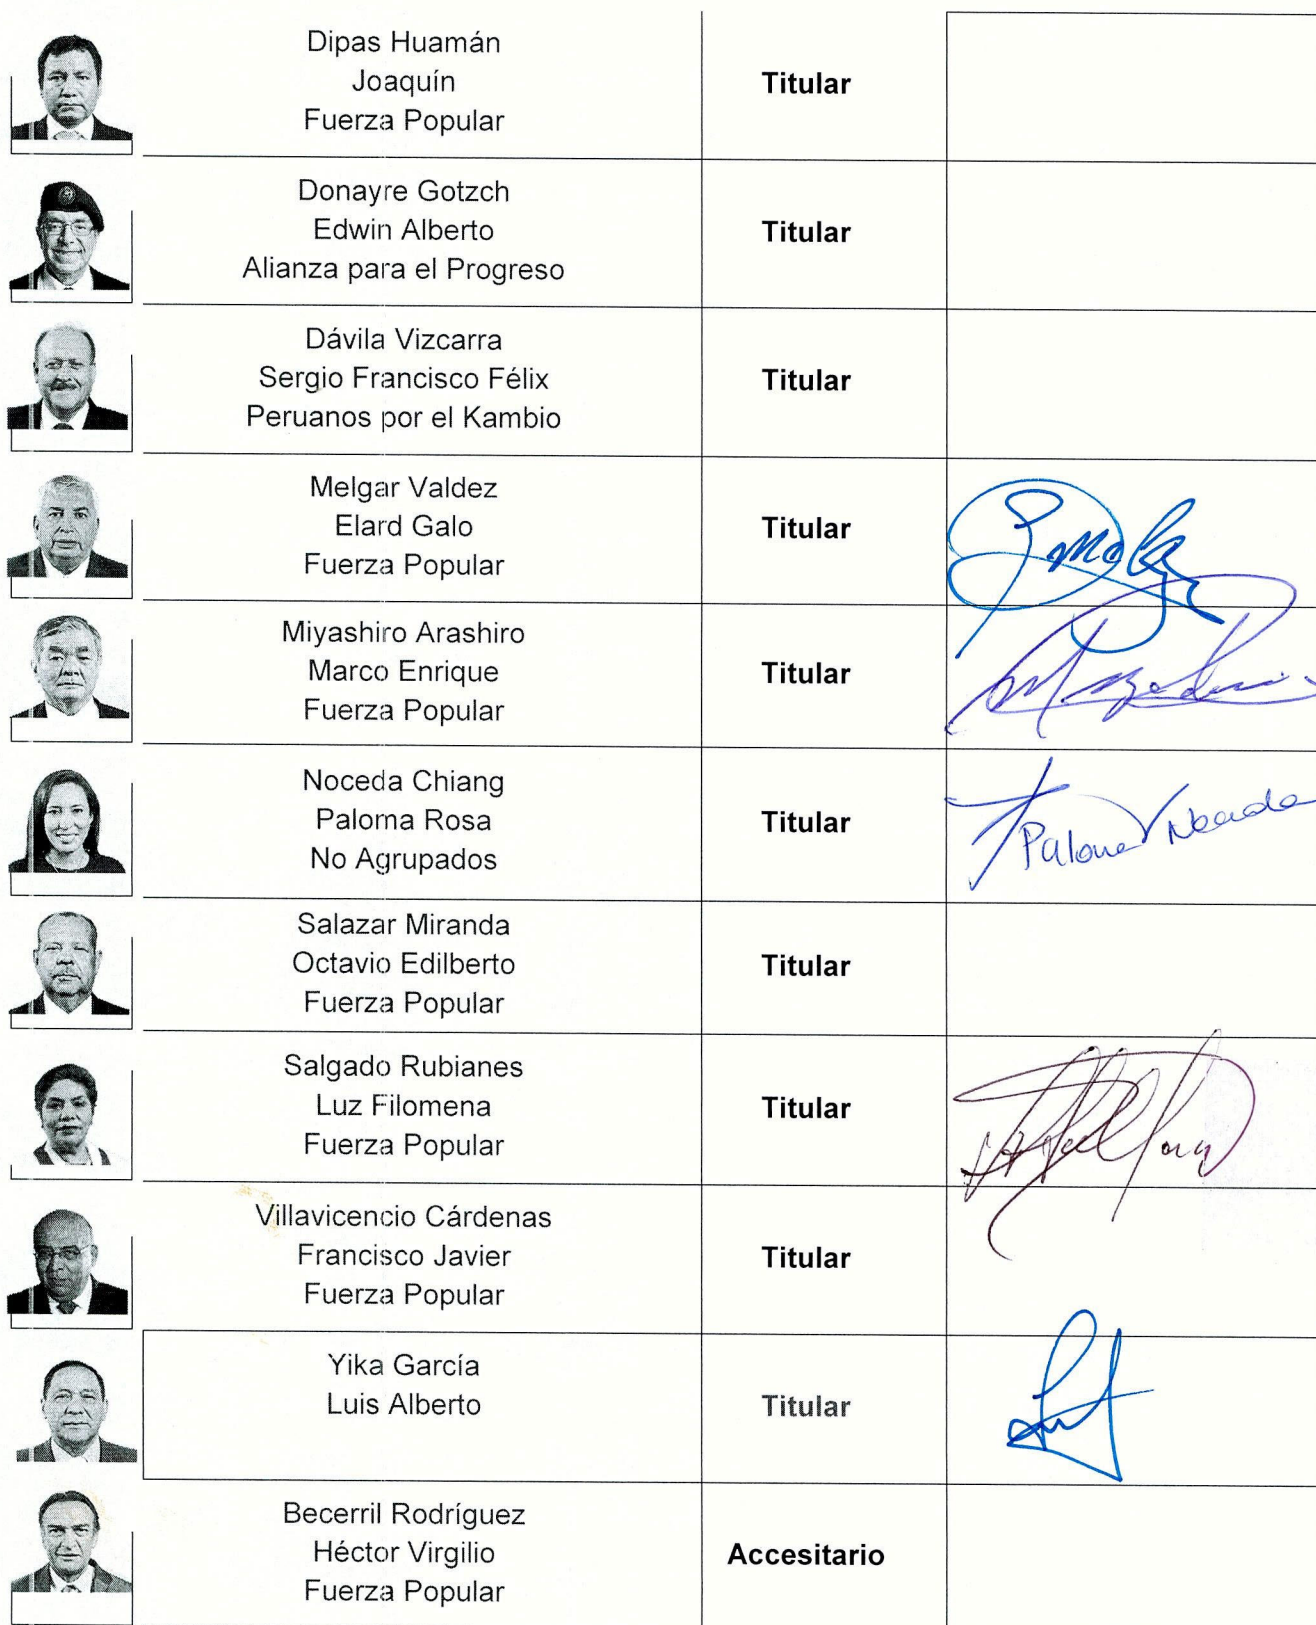 Dipas Huamán
Joaquín
Fuerza Popular
Titular
Donayre Gotzch
Edwin Alberto
Alianza para el Progreso
Titular
Dávila Vizcarra
Sergio Francisco Félix
Peruanos por el Kambio
Titular
Melgar Valdez
Elard Galo
Fuerza Popular
Titular
Miyashiro Arashiro
Marco Enrique
Fuerza Popular
Titular
Noceda Chiang
Paloma Rosa
No Agrupados
Titular
Paloma Noceda
Salazar Miranda
Octavio Edilberto
Fuerza Popular
Titular
Salgado Rubianes
Luz Filomena
Fuerza Popular
Titular
Villavicencio Cárdenas
Francisco Javier
Fuerza Popular
Titular
Yika García
Luis Alberto
Titular
Becerril Rodríguez
Héctor Virgilio
Fuerza Popular
Accesitario